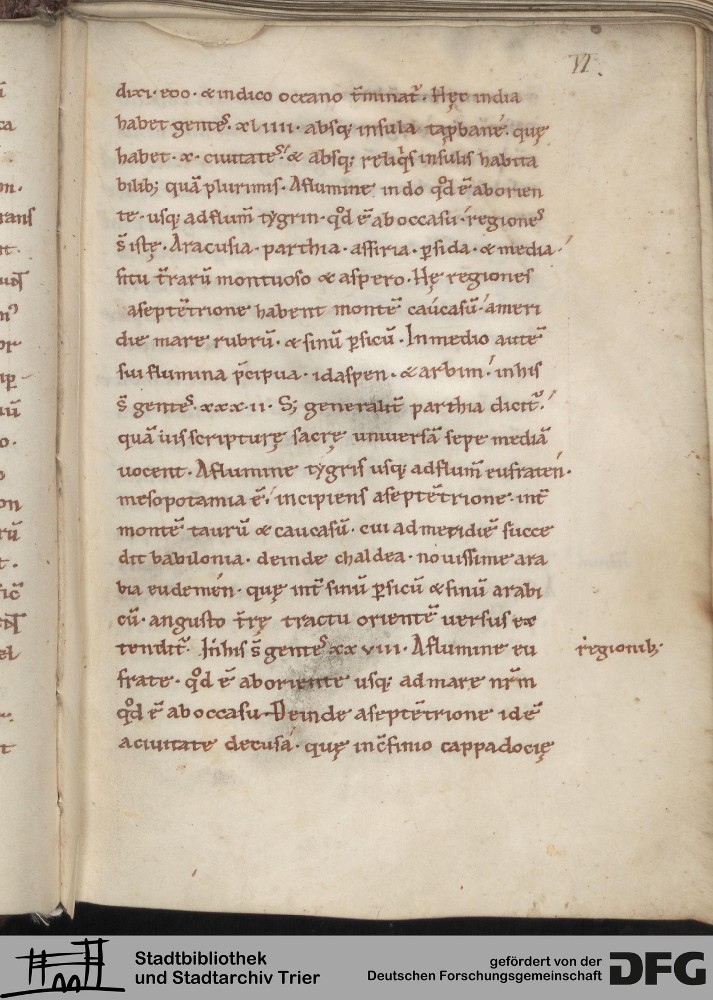 VI.
dixi· eoo· & indico oceano t̄minat᷑· Hęc india
habet gentes· xl iiii· absq; insula tap̄bane· quę
habet· x· ciuitates· & absq; reliq̇s insulis habita
bilib; quā plurimis· A flumine indo q̇d ē ab orien
te· usq; ad flum̄ tẏgrin· q̇d ē ab occasu· regiones
s̄ istę· Aracusia· parthia· assiria· ꝑsida· & media·
situ t̄rarū montuoso & aspero· Hę regiones
a septētrione habent montē caucasū· a meri
die mare rubrū· & sinū ꝑsicū· In medio autē
sui flumina p̄cipua· idaspen· & arbim· in his
s̄ gentes· xxx·ii· S; generalit̄ parthia dicit᷑·
quā uis scripturę sacrę uniuersā sepe mediā
uocent· A flumine tẏgris usq; ad flum̄ eufraten·
mesopotamia ē· incipiens a septētrione· int̄
montē taurū & caucasū· cui ad meridiē succe
dit babilonia· deinde chaldea· nouissime ara
bia eudemen· quę int̄ sinū ꝑsicū & sinū arabi
cū· angusto t̄rę tractu orientē uersus ex
tendit᷑· In his s̄ gentes xx viii· A flumine eu
regionib;
frate· q̇d ē ab oriente usq; ad mare nr̄m
q̇d ē ab occasu· Deinde a septētrione idē
a ciuitate decusa· quę in c̄finio cappadocię
Stadtbibliothek
und Stadtarchiv Trier
gefördert von der
Deutschen Forschungsgemeinschaft
DFG